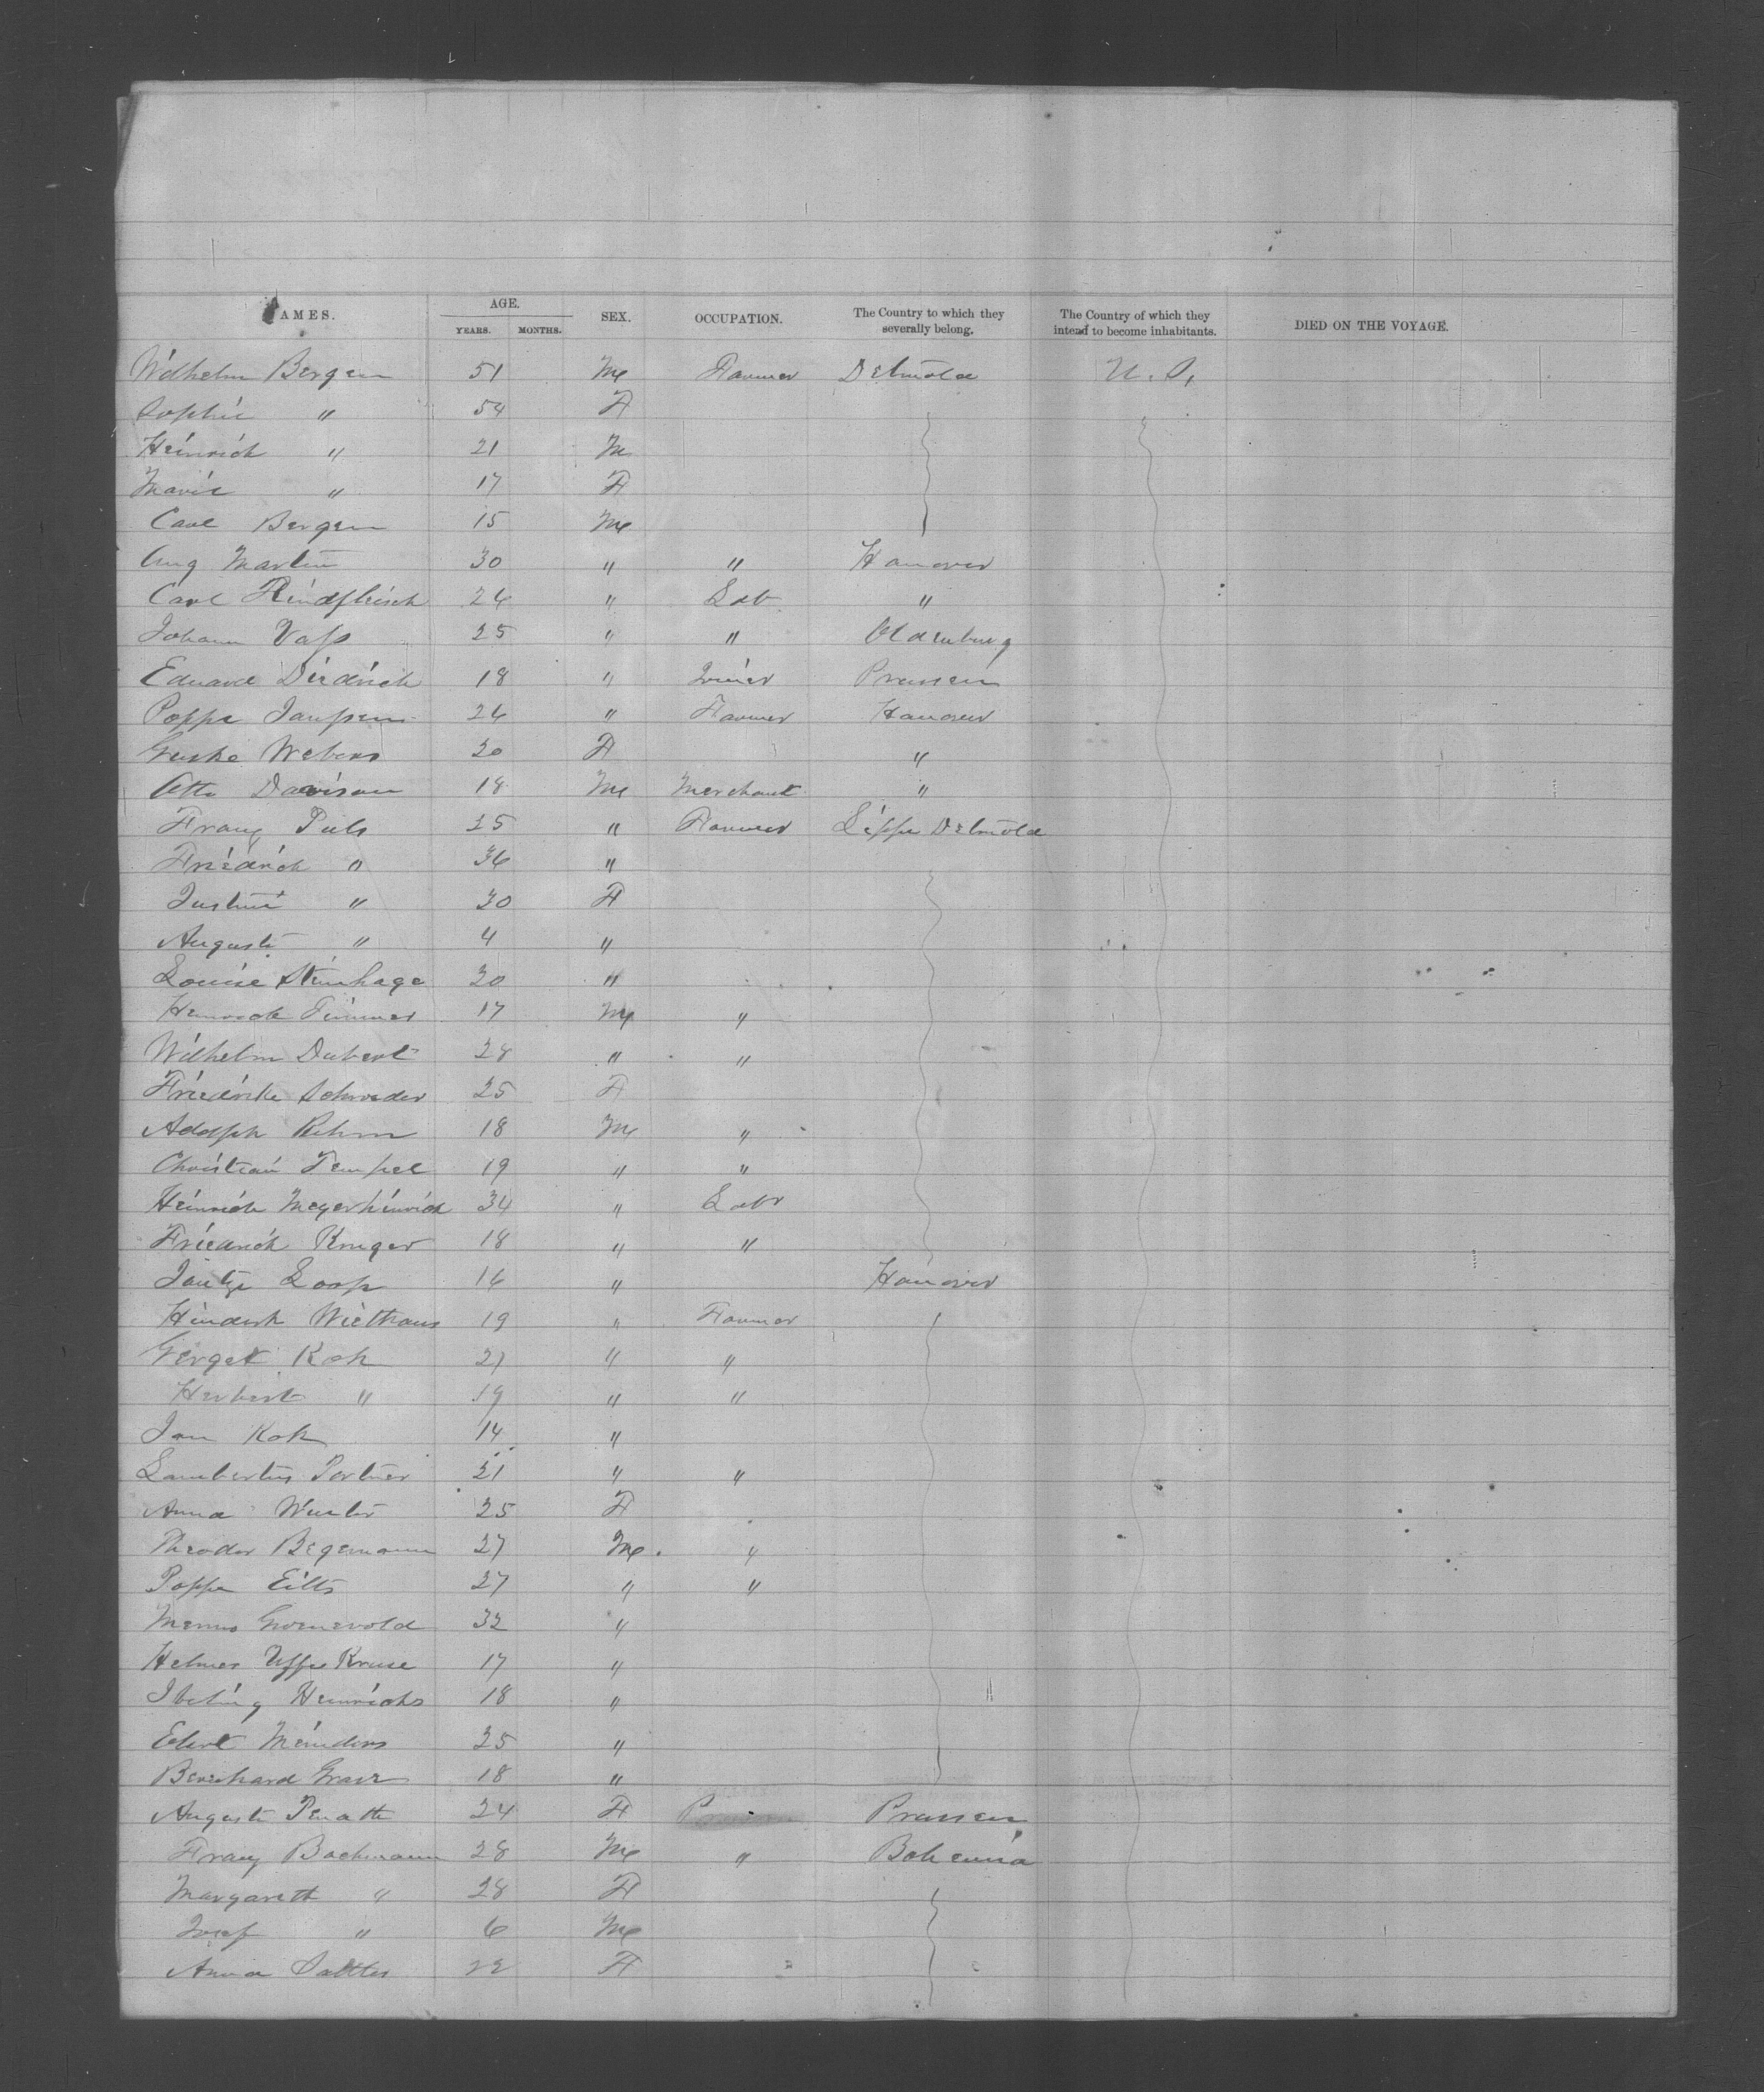 AMES. AGE. SEX. OCCUPATION. The Country to which they severally belong. The Country of which they intend to become inhabitants. DIED ON THE VOYAGE.
YEARS. MONTHS.
Wilhelm Bergen 51 M Farmer Detmold U. S.
Sophie " 54 F
Heinrich " 21 M
Marie " 17 F
Carl Bergen 15 M
Aug Martin 30 " " Hanover
Carl Rindfleisch 26 " Lab "
Johann Vass 25 " " Oldenburg
Eduard Diedrich 18 " Joiner Prussen
Poppe Janssen 26 " Farmer Hanover
Geske Webers 20 F "
Otto Davison 18 M Merchant "
Franz Puls 25 " Farmer Lippe Detmold
Friedrich " 36 "
Justine " 30 F
Auguste " 4 "
Louise Steinhage 20 "
Heinrich Timmer 17 M "
Wilhelm Dubert 28 " "
Friedrike Schroeder 25 F
Adolph Rehm 18 M "
Christian Tempel 19 " "
Heinrich Meyerhinrich 34 " Labr
Friedrich Kruger 18 " "
Jantje Loop 16 " Hanover
Hinderk Wiethaus 19 " Farmer
Gerget Kok 21 " "
Herbert " 19 " "
Jan Kok 14 "
Lambertus Portner 21 " "
Anna 25 F
Theodor Begemann 27 M "
Poppe Eilts 27 " "
Menno Groenewold 32 "
Helmer Uffe Kruse 17 "
Ibeling Heinrichs 18 "
Edert Meinders 25 "
Bernhard 18 "
Auguste 24 F Prussen
Franz Bachmann 28 M " Bohemia
Margareth " 28 F
Josef " 6 M
Anna Sattler 22 F